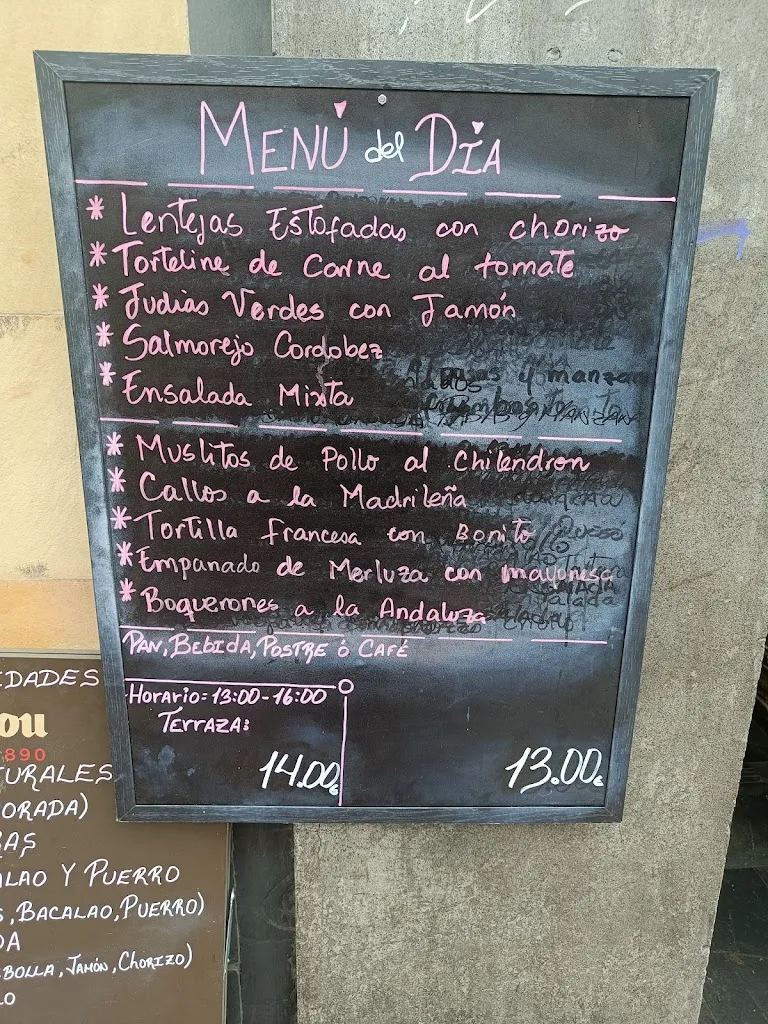 MENÚ del DÍA
* Lentejas Estofadas con chorizo
* Torteline de Carne al tomate
* Judias Verdes con Jamón
* Salmorejo Cordobez
* Ensalada Mixta
* Muslitos de Pollo al Chilendron
* Callos a la Madrileña
* Tortilla francesa con Bonito
* Empanado de Merluza con mayonesa
* Boquerones a la Andaluza
PAN, BEBIDA, POSTRE ó CAFÉ
Horario: 13:00-16:00
TERRAZA:
14.00€
13.00€
IDADES
ou
890
TURALES
ORADA)
RAS
ALAO Y PUERRO
S, BACALAO, PUERRO)
DA
BOLLA, JAMÓN, CHORIZO)
LO